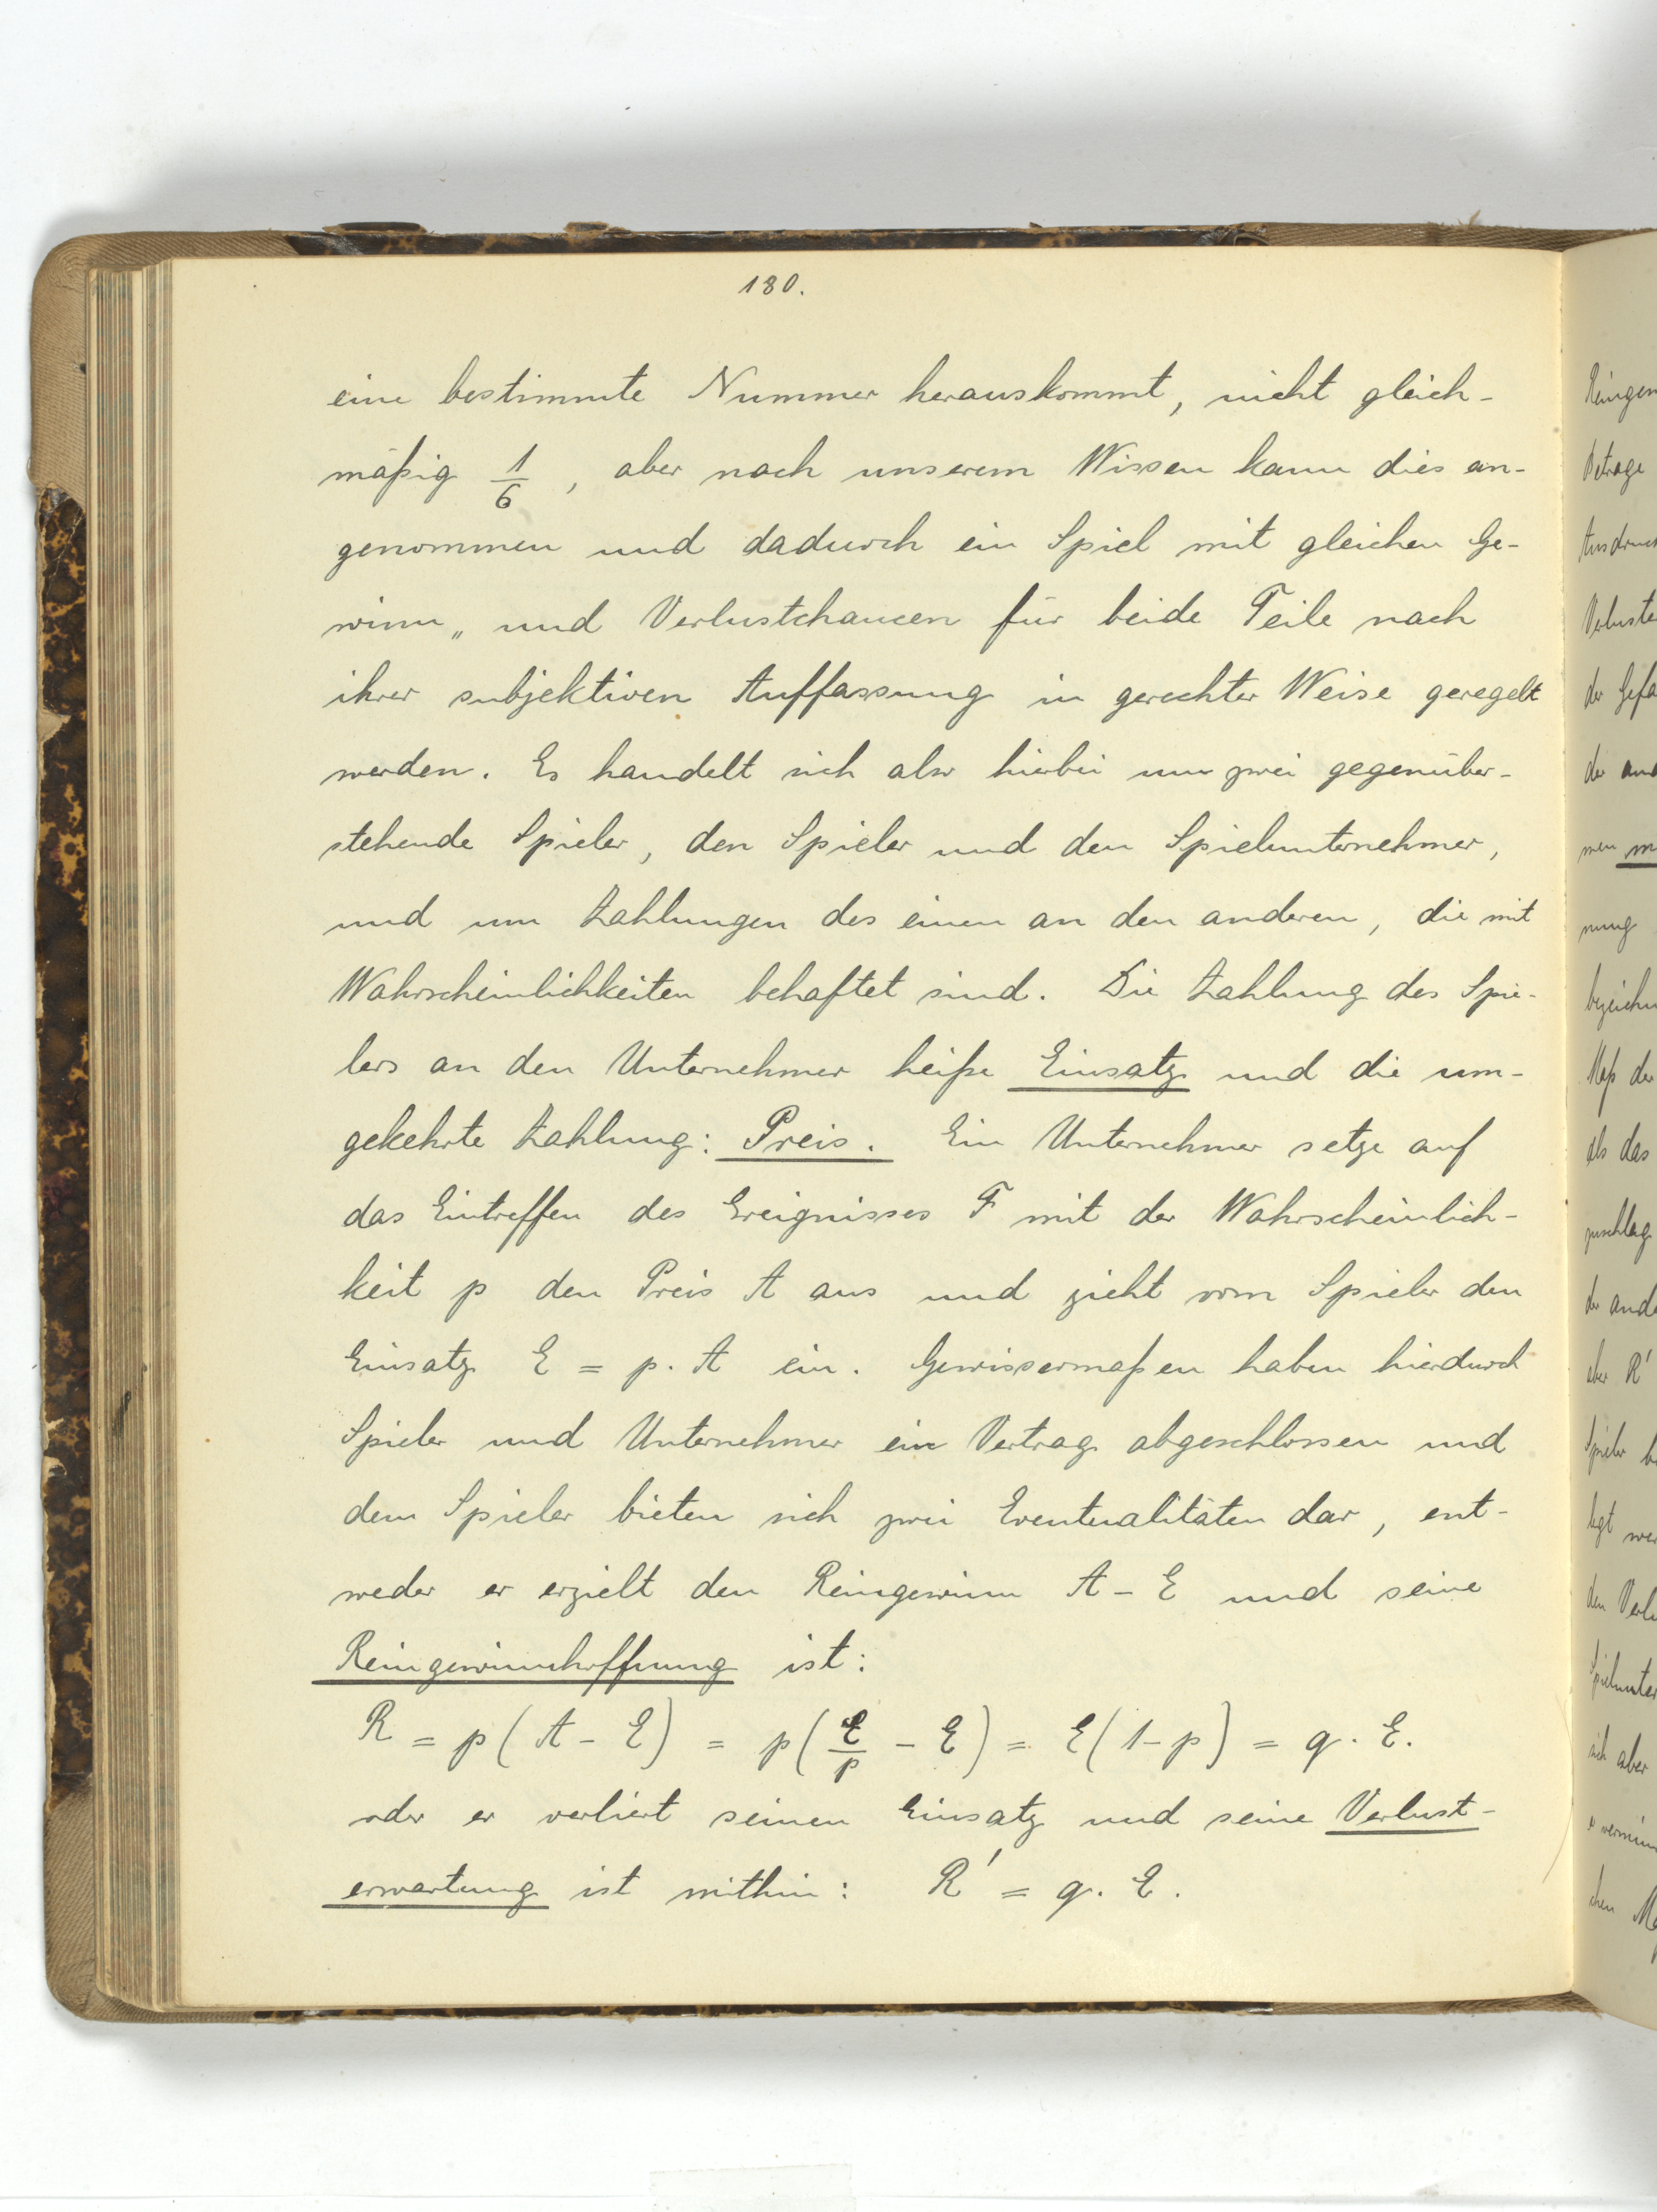 180.
eine bestimmte Nummer herauskommt, nicht gleich-
mäßig 1/6, aber nach unserem Wissen kann dies an-
genommen und dadurch ein Spiel mit gleichen Ge-
winn „ und Verlustchancen für beide Teile nach
ihrer subjektiven Auffassung in gerechter Weise geregelt
werden. Es handelt sich also hierbei um zwei gegenüber-
stehende Spieler, den Spieler und den Spielunternehmer,
und um Zahlungen des einen an den anderen, die mit
Wahrscheinlichkeiten behaftet sind. Die Zahlung des Spie-
lers an den Unternehmer heiße Einsatz und die um-
gekehrte Zahlung: Preis. Ein Unternehmer setze auf
das Eintreffen des Ereignisses F mit der Wahrscheinlich-
keit p den Preis A aus und zieht vom Spieler den
Einsatz E = p. A ein. Gewissermaßen haben hierdurch
Spieler und Unternehmer ein Vertrag abgeschlossen und
dem Spieler bieten sich zwei Eventualitäten dar, ent-
weder er erzielt den Reingewinn A - E und seine
Reingewinnhoffnung ist:
R = p (A - E) = p (E/p - E) = E (1-p) = q. E.
oder er verliert seinen Einsatz und seine Verlust-
erwartung ist mithin: R' = q. E.
Betrage
der Gefa
nung
als das
der ande
aber R'
sich aber